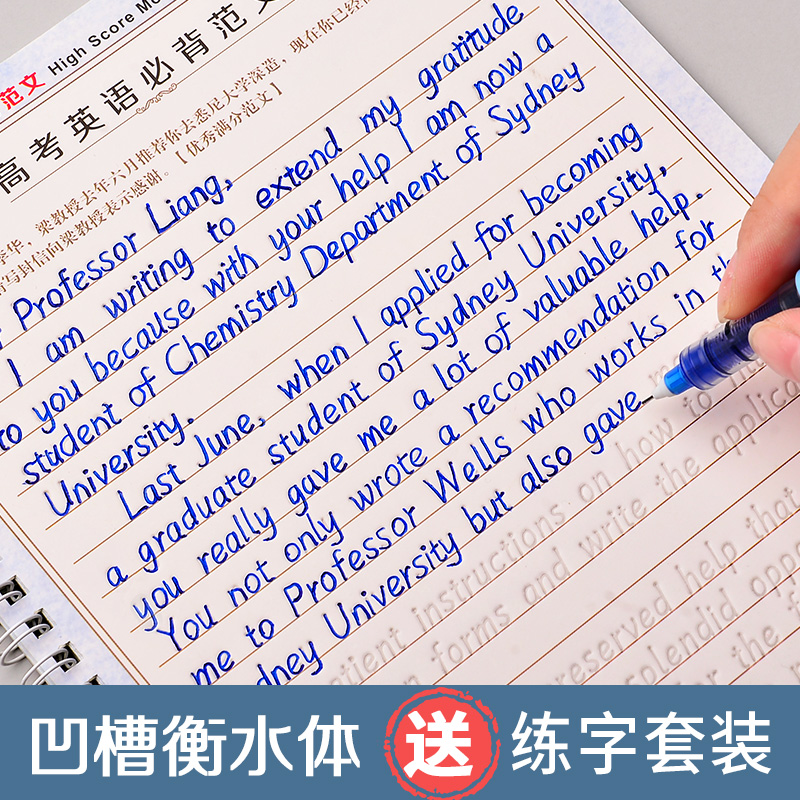 范文 High Score Mo
高考英语必背范文
李华，梁教授去年六月推荐你去悉尼大学深造，现在你已经
写封信向梁教授表示感谢。【优秀满分范文】
Professor Liang,
I am writing to extend my gratitude
to you because with your help I am now a
student of Chemistry Department of Sydney
University.
Last June, when I applied for becoming
a graduate student of Sydney University,
you really gave me a lot of valuable help.
You not only wrote a recommendation for
me to Professor Wells who works in th
dney University but also gave
patient instructions on how to
forms and write the applica
preserved help that
splendid oppo
for the f
凹槽衡水体 送 练字套装